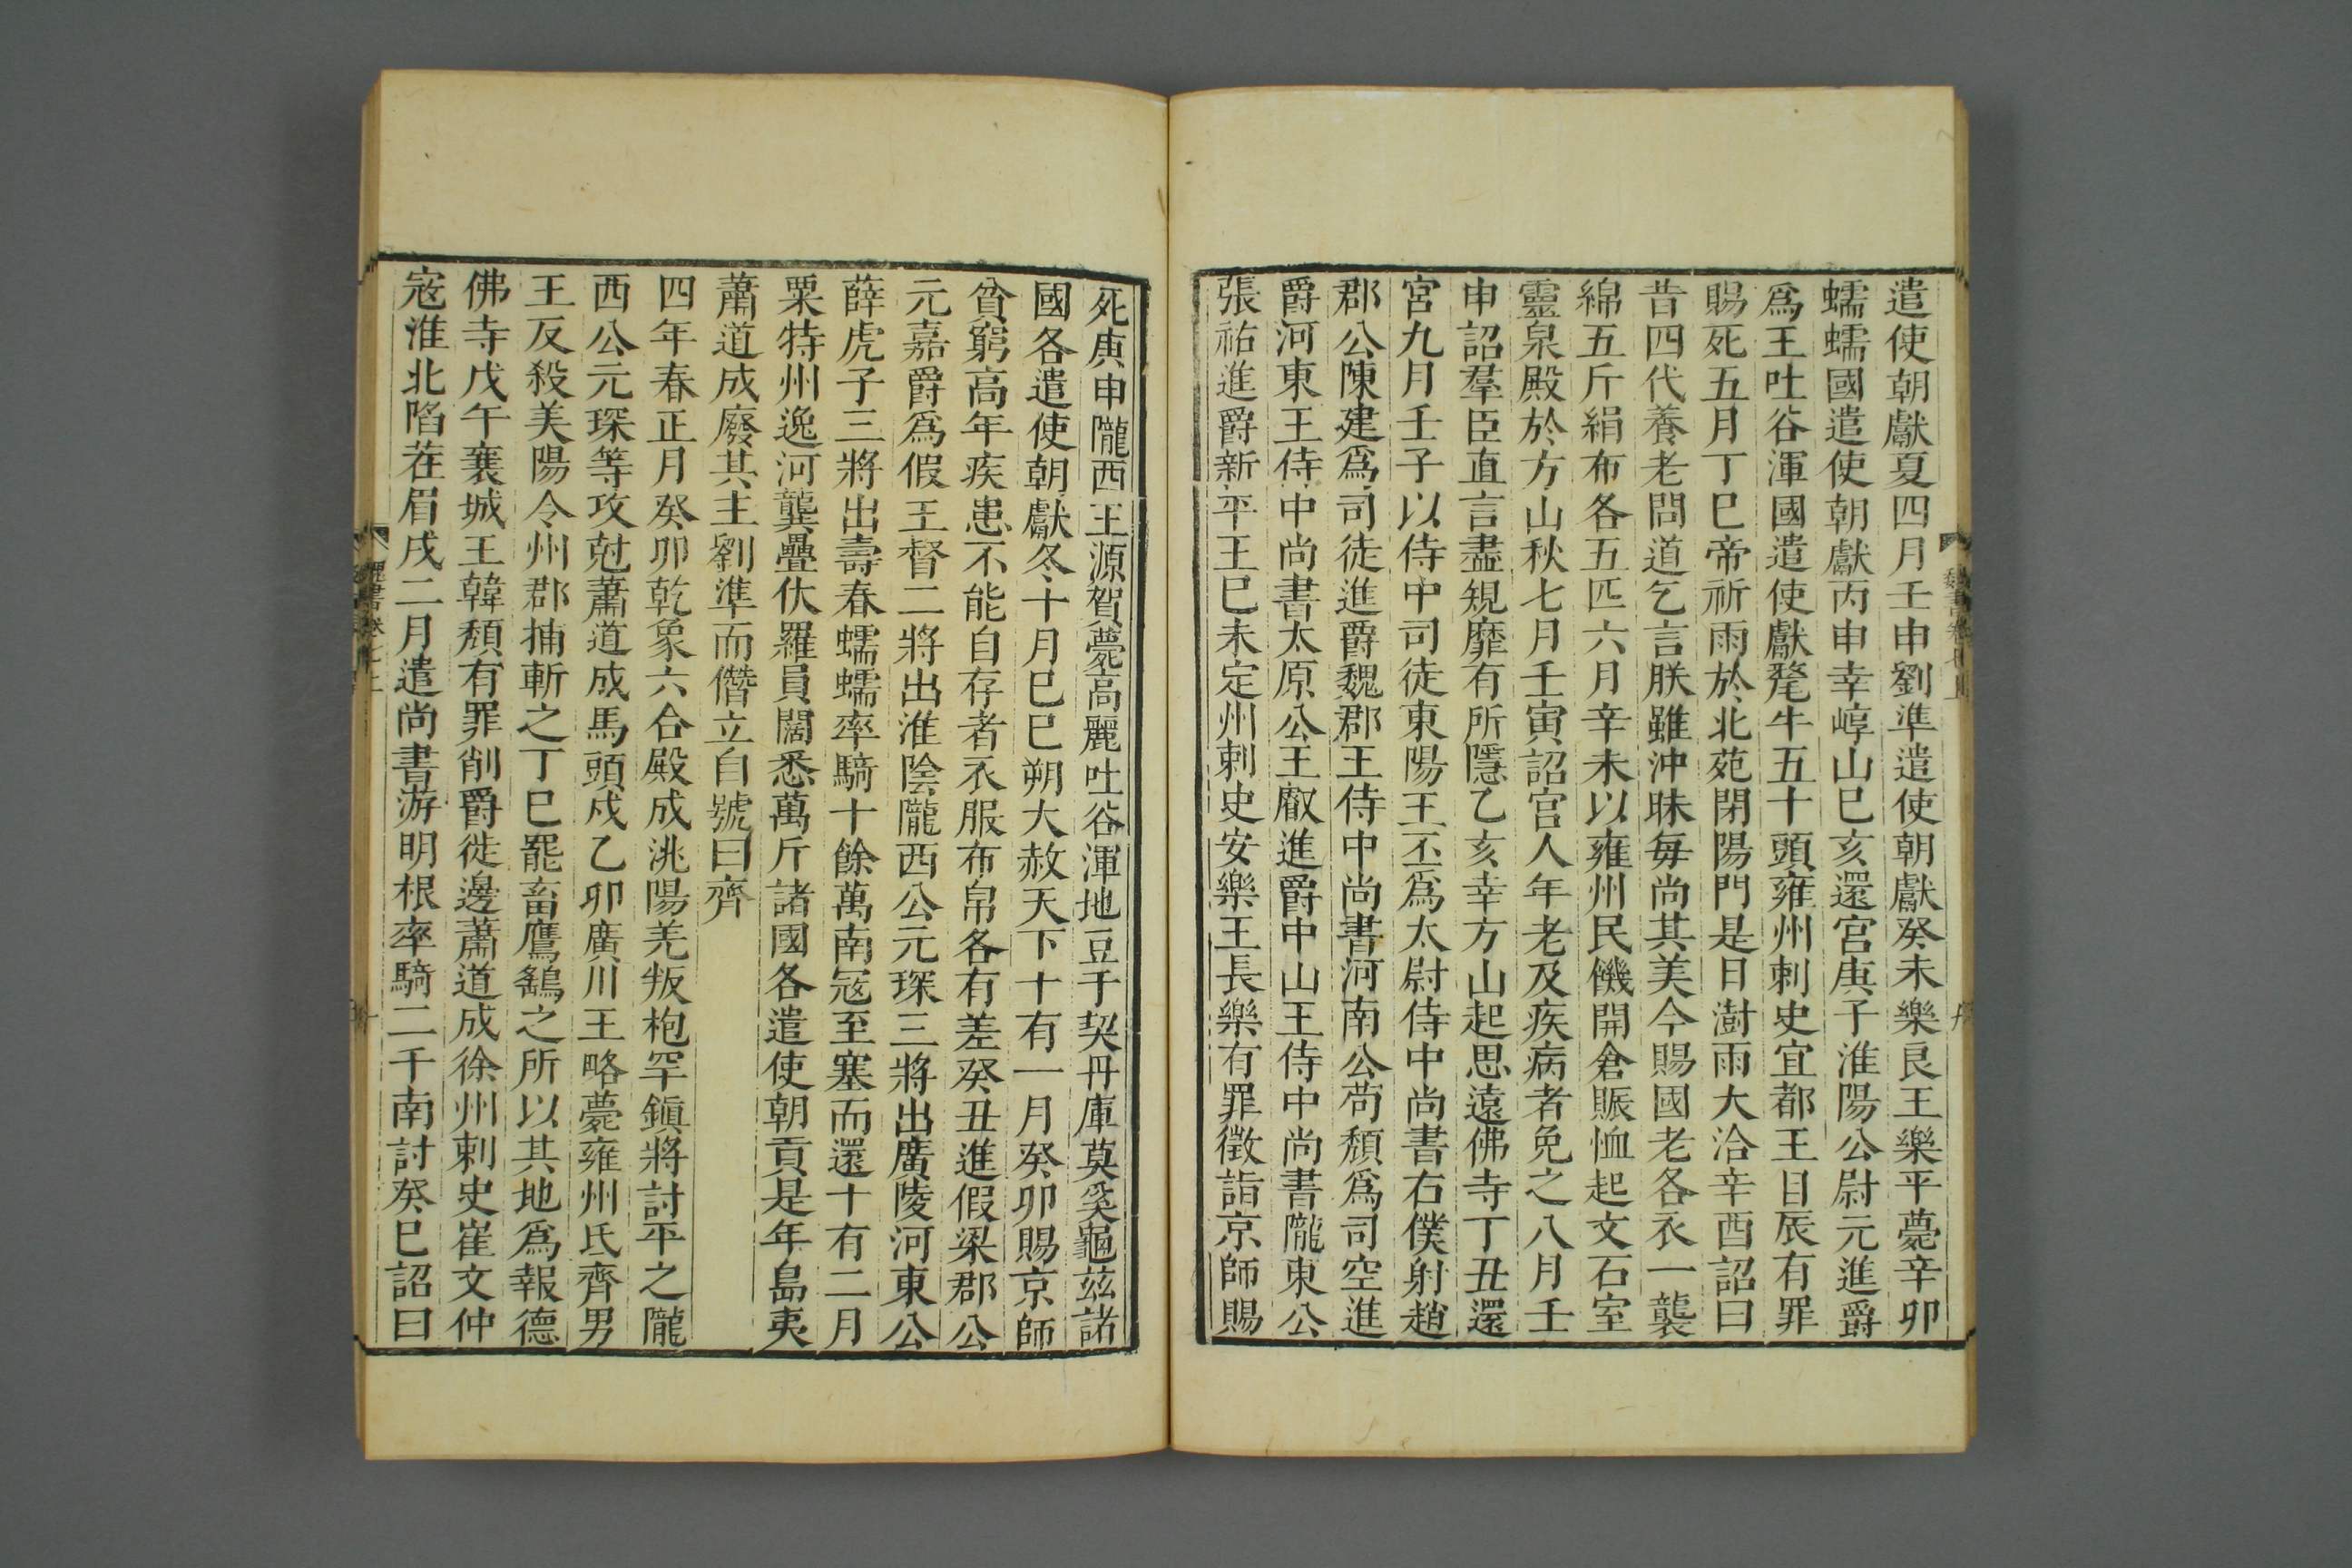 遣使朝獻夏四月壬申劉準遣使朝獻癸未樂良王樂平薨辛卯
蠕蠕國遣使朝獻丙申幸崞山巳亥還宮庚子淮陽公尉元進爵
爲王吐谷渾國遣使獻氂牛五十頭雍州刺史宜都王目辰有罪
賜死五月丁巳帝祈雨於北苑閉陽門是日澍雨大洽辛酉詔曰
昔四代養老問道乞言朕雖沖昧每尚其美今賜國老各衣一襲
綿五斤絹布各五匹六月辛未以雍州民饑開倉賑恤起文石室
靈泉殿於方山秋七月壬寅詔宮人年老及疾病者免之八月壬
申詔羣臣直言盡規靡有所隱乙亥幸方山起思遠佛寺丁丑還
宮九月壬子以侍中司徒東陽王丕爲太尉侍中尚書右僕射趙
郡公陳建爲司徒進爵魏郡王侍中尚書河南公苟頹爲司空進
爵河東王侍中尚書太原公王叡進爵中山王侍中尚書隴東公
張祐進爵新平王巳未定州刺史安樂王長樂有罪徵詣京師賜
死庚申隴西王源賀薨高麗吐谷渾地豆于契丹庫莫奚龜茲諸
國各遣使朝獻冬十月巳巳朔大赦天下十有一月癸卯賜京師
貧窮高年疾患不能自存者衣服布帛各有差癸丑進假梁郡公
元嘉爵爲假王督二將出淮陰隴西公元琛三將出廣陵河東公
薛虎子三將出壽春蠕蠕率騎十餘萬南寇至塞而還十有二月
粟特州逸河龔疊伏羅員闊悉萬斤諸國各遣使朝貢是年島夷
蕭道成廢其主劉準而僭立自號曰齊
四年春正月癸卯乾象六合殿成洮陽羌叛枹罕鎮將討平之隴
西公元琛等攻尅蕭道成馬頭戍乙卯廣川王略薨雍州氐齊男
王反殺美陽令州郡捕斬之丁巳罷畜鷹鷂之所以其地爲報德
佛寺戊午襄城王韓頹有罪削爵徙邊蕭道成徐州刺史崔文仲
寇淮北陷茬眉戍二月遣尚書游明根率騎二千南討癸巳詔曰
魏書卷七上